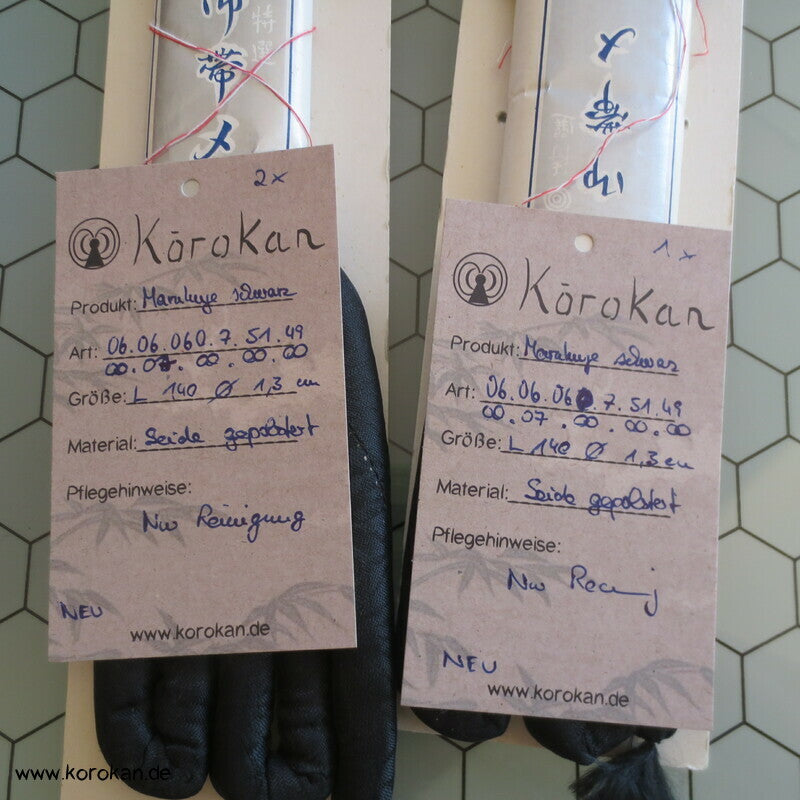 御帯〆
特選
2x
KōroKan
Produkt: Maruguje schwarz
Art: 06.06.060.7.51.49
00.07.00.00.00
Größe: L 140 Ø 1,3 cm
Material: Seide gepolstert
Pflegehinweise:
Nur Reinigung
NEU
www.korokan.de
御帯〆
1x
KōroKan
Produkt: Maruguje schwarz
Art: 06.06.060.7.51.49
00.07.00.00.00
Größe: L 140 Ø 1,3 cm
Material: Seide gepolstert
Pflegehinweise:
Nur
NEU
www.korokan.de
www.korokan.de